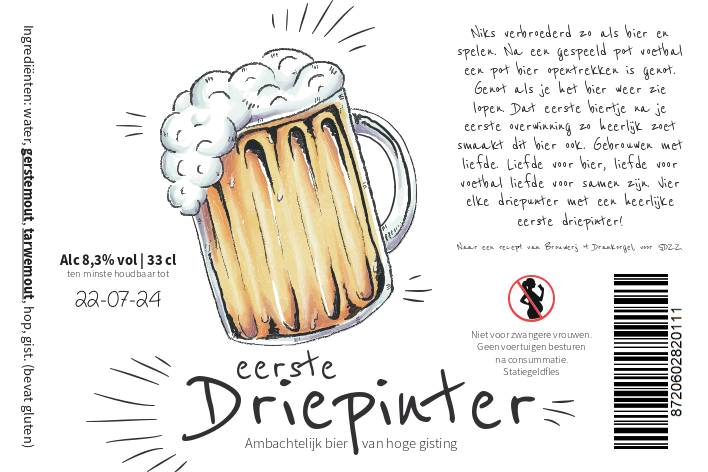 Ingrediënten: water, gerstemout, tarwemout, hop, gist. (bevat gluten)
Alc 8,3% vol | 33 cl
ten minste houdbaar tot
22-07-24
eerste
Driepinter
Ambachtelijk bier van hoge gisting
Niks verbroederd zo als bier en
spelen. Na een gespeeld pot voetbal
een pot bier opentrekken is genot.
Genot als je het bier weer zie
lopen. Dat eerste biertje na je
eerste overwinning zo heerlijk zoet
smaakt dit bier ook. Gebrouwen met
liefde. Liefde voor bier, liefde voor
voetbal liefde voor samen zijn. Vier
elke driepunter met een heerlijke
eerste driepinter!
Naar een recept van Brouwerij 't Drankorgel, voor SDZZ
Niet voor zwangere vrouwen.
Geen voertuigen besturen
na consummatie.
Statiegeldfles
8720602820111